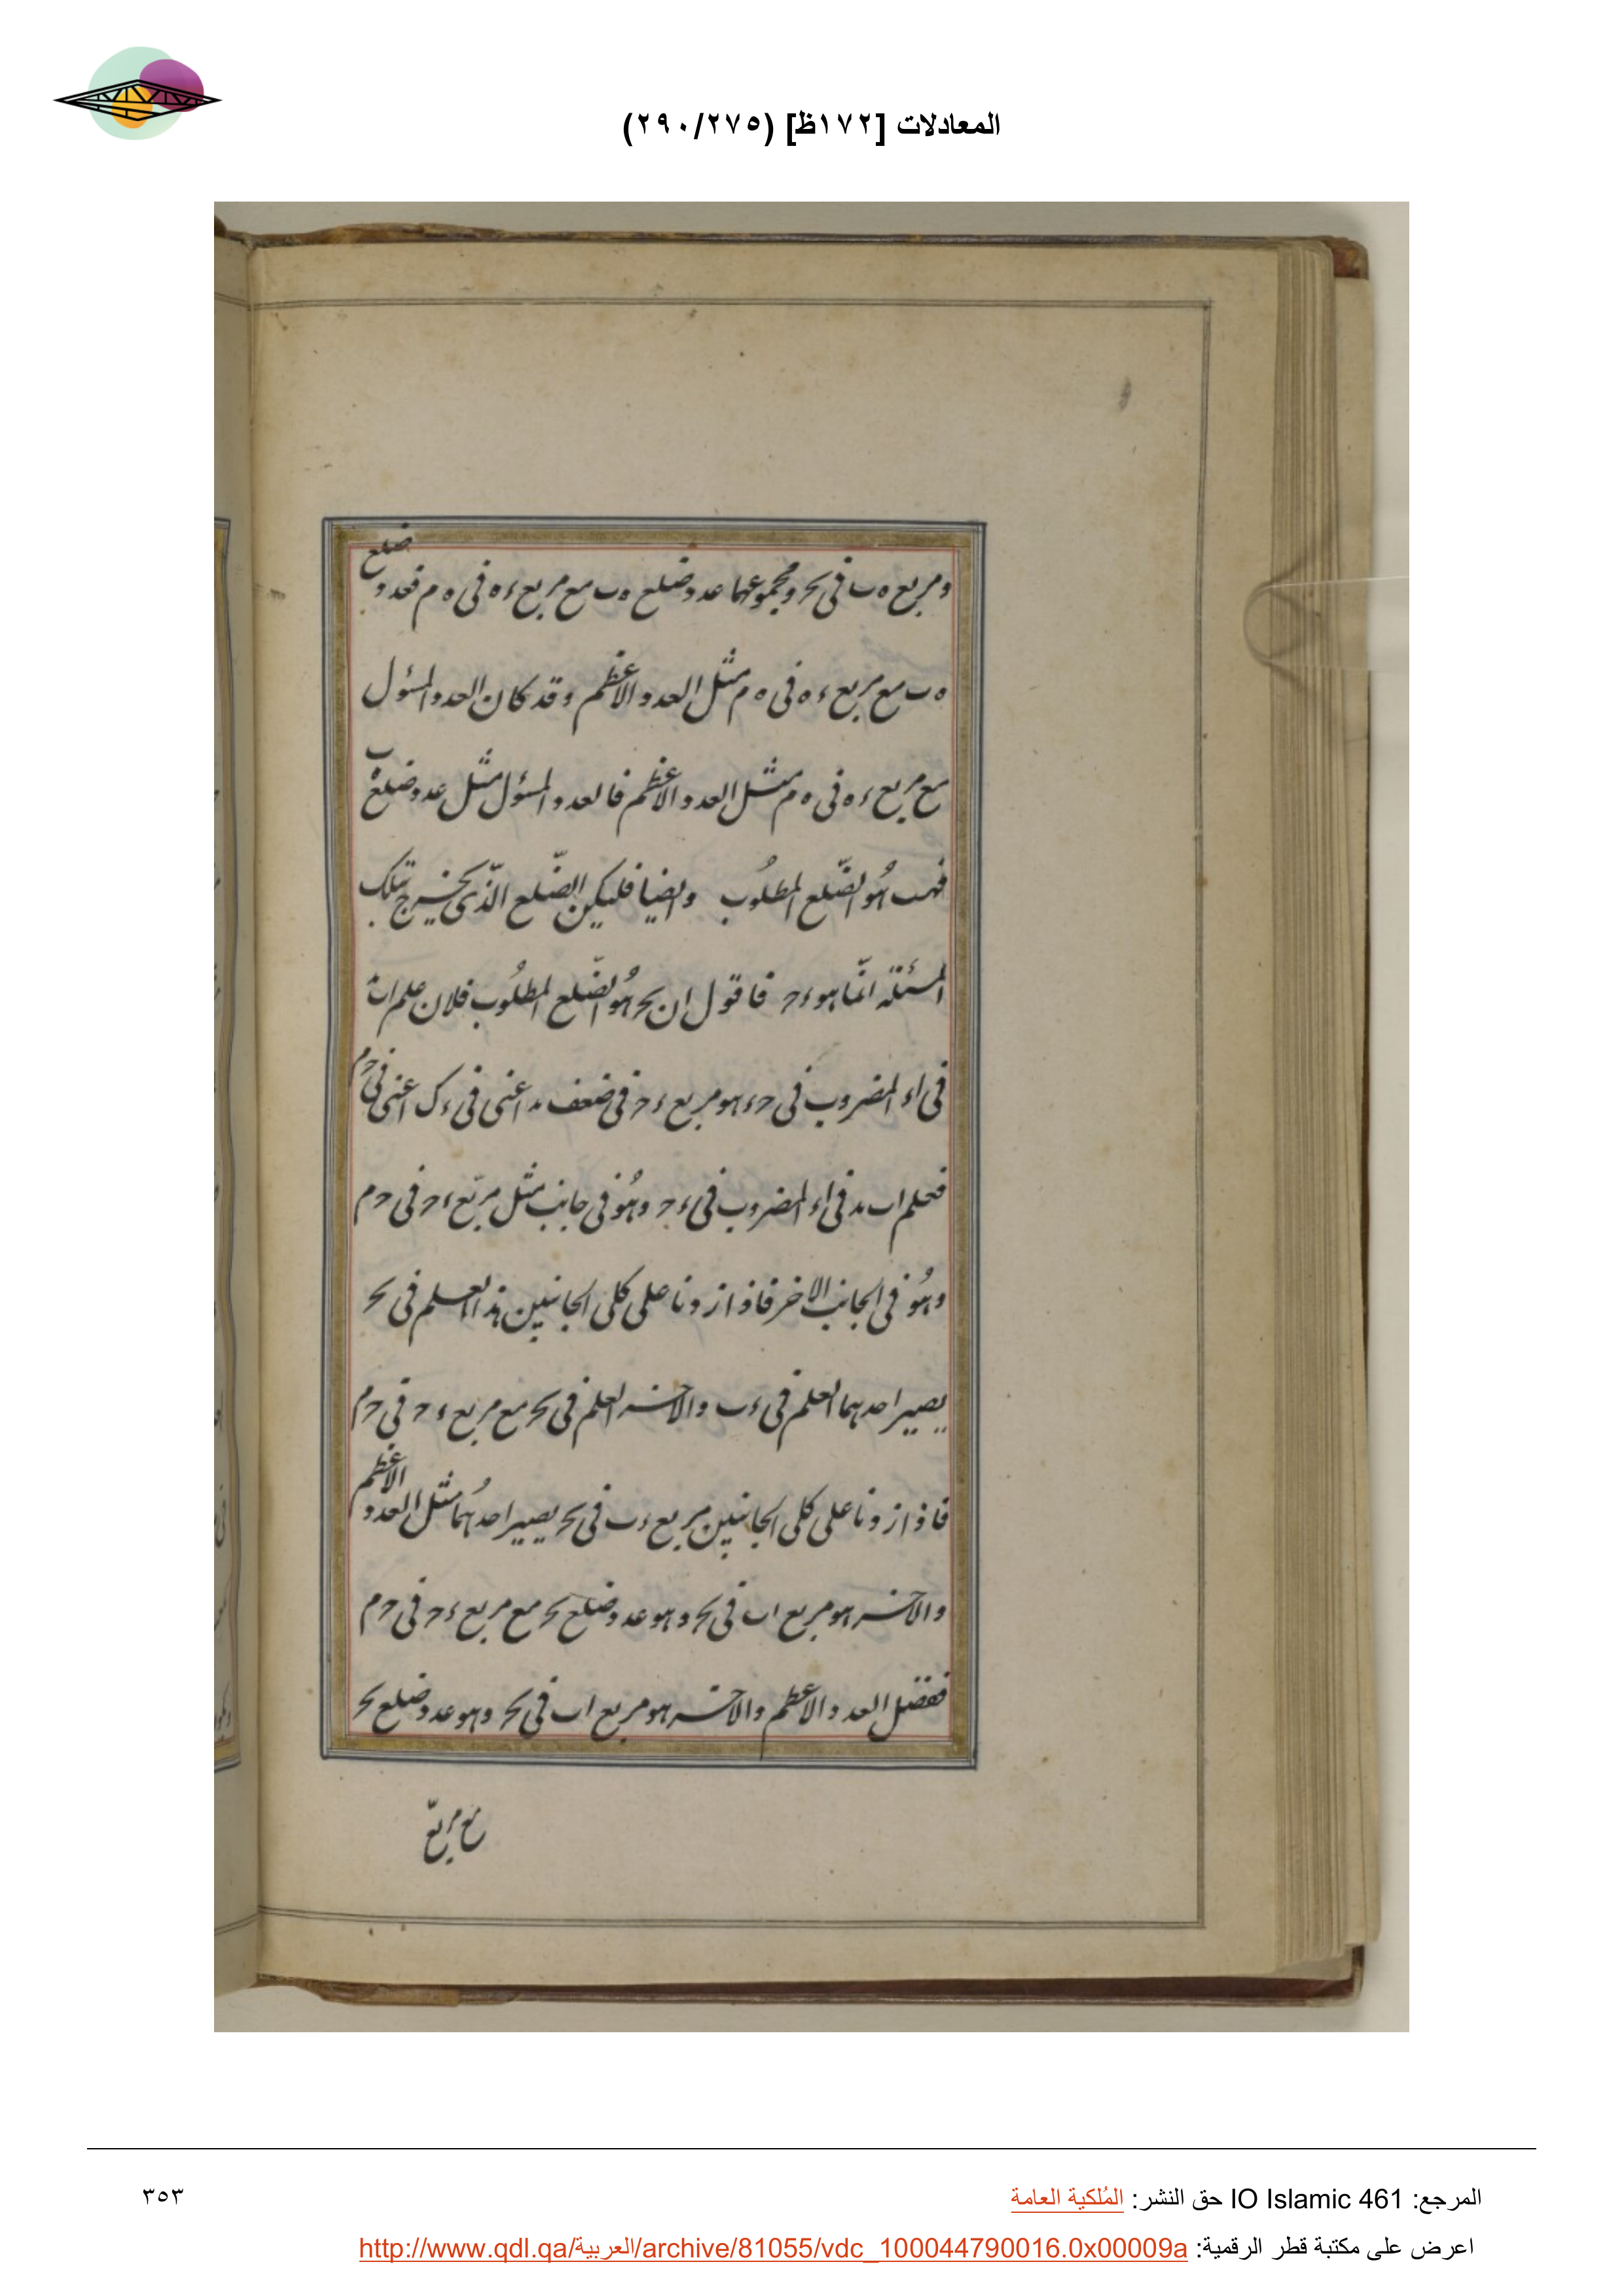 المعادلات [١٧٢ظ] (٢٩٠/٢٧٥)
ومربع ه ب فى ب ح ومجموعهما عدد ضلع ه ب مع مربع ء ه فى ه م فعدد ضلع
ه ب مع مربع ء ه فى ه م مثل العدد الاعظم وقد كان العدد المسؤل
مع مربع ء ه فى ه م مثل العدد الاعظم فالعدد المسؤل مثل عدد ضلع ه ب
فه ب هو الضلع المطلوب وايضا فليكن الضلع الذى يخرج بتلك
المسئلة انما هو ء ح فاقول ان ب ح هو الضلع المطلوب فلان علم ا ب
فى اء المضروب فى ح ء هو مربع ء ح فى ضعف اعنى فى ء ك اعنى فى ح م
فعلم ا ب فى اء المضروب فى ء ح وهو فى جانب مثل مربع ء ح فى ح م
وهو فى الجانب الاخر فاذا زدنا على كلى الجانبين هذا العلم فى ب ح
يصير احدهما العلم فى ء ب والاخر العلم فى ب ح مع مربع ء ح فى ح م
فاذا زدنا على كلى الجانبين مربع ء ب فى ب ح يصير احدهما مثل العدد الاعظم
والاخر هو مربع ا ب فى ب ح وهو عدد ضلع ب ح مع مربع ء ح فى ح م
ففضل العدد الاعظم والاخر هو مربع ا ب فى ب ح وهو عدد ضلع ب ح
مع مربع
المرجع: IO Islamic 461 حق النشر: المُلكية العامة
٣٥٣
اعرض على مكتبة قطر الرقمية: http://www.qdl.qa/العربية/archive/81055/vdc_100044790016.0x00009a